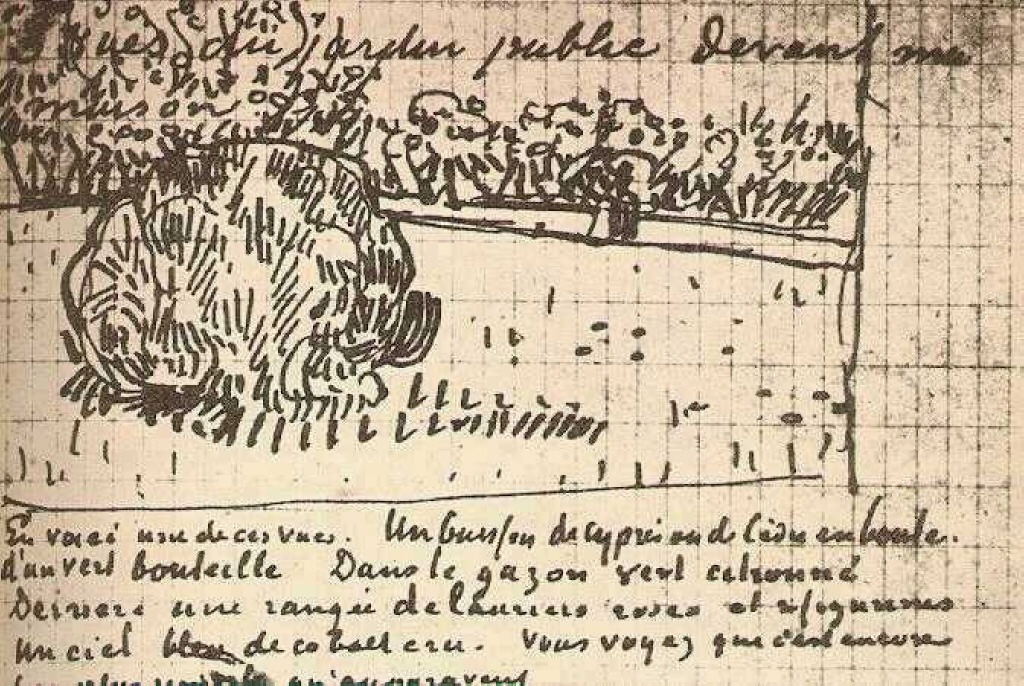 vues du jardin public Devant ma
maison
En voici une de ces vues. Un buisson de cyprès ou de cèdre en boule.
d'un vert bouteille Dans le gazon vert citronné
Derriere une rangée de lauriers roses et 2 figurines
Un ciel bleu de cobalt cru. Vous voyez que c'est encore
plus qu'auparavant